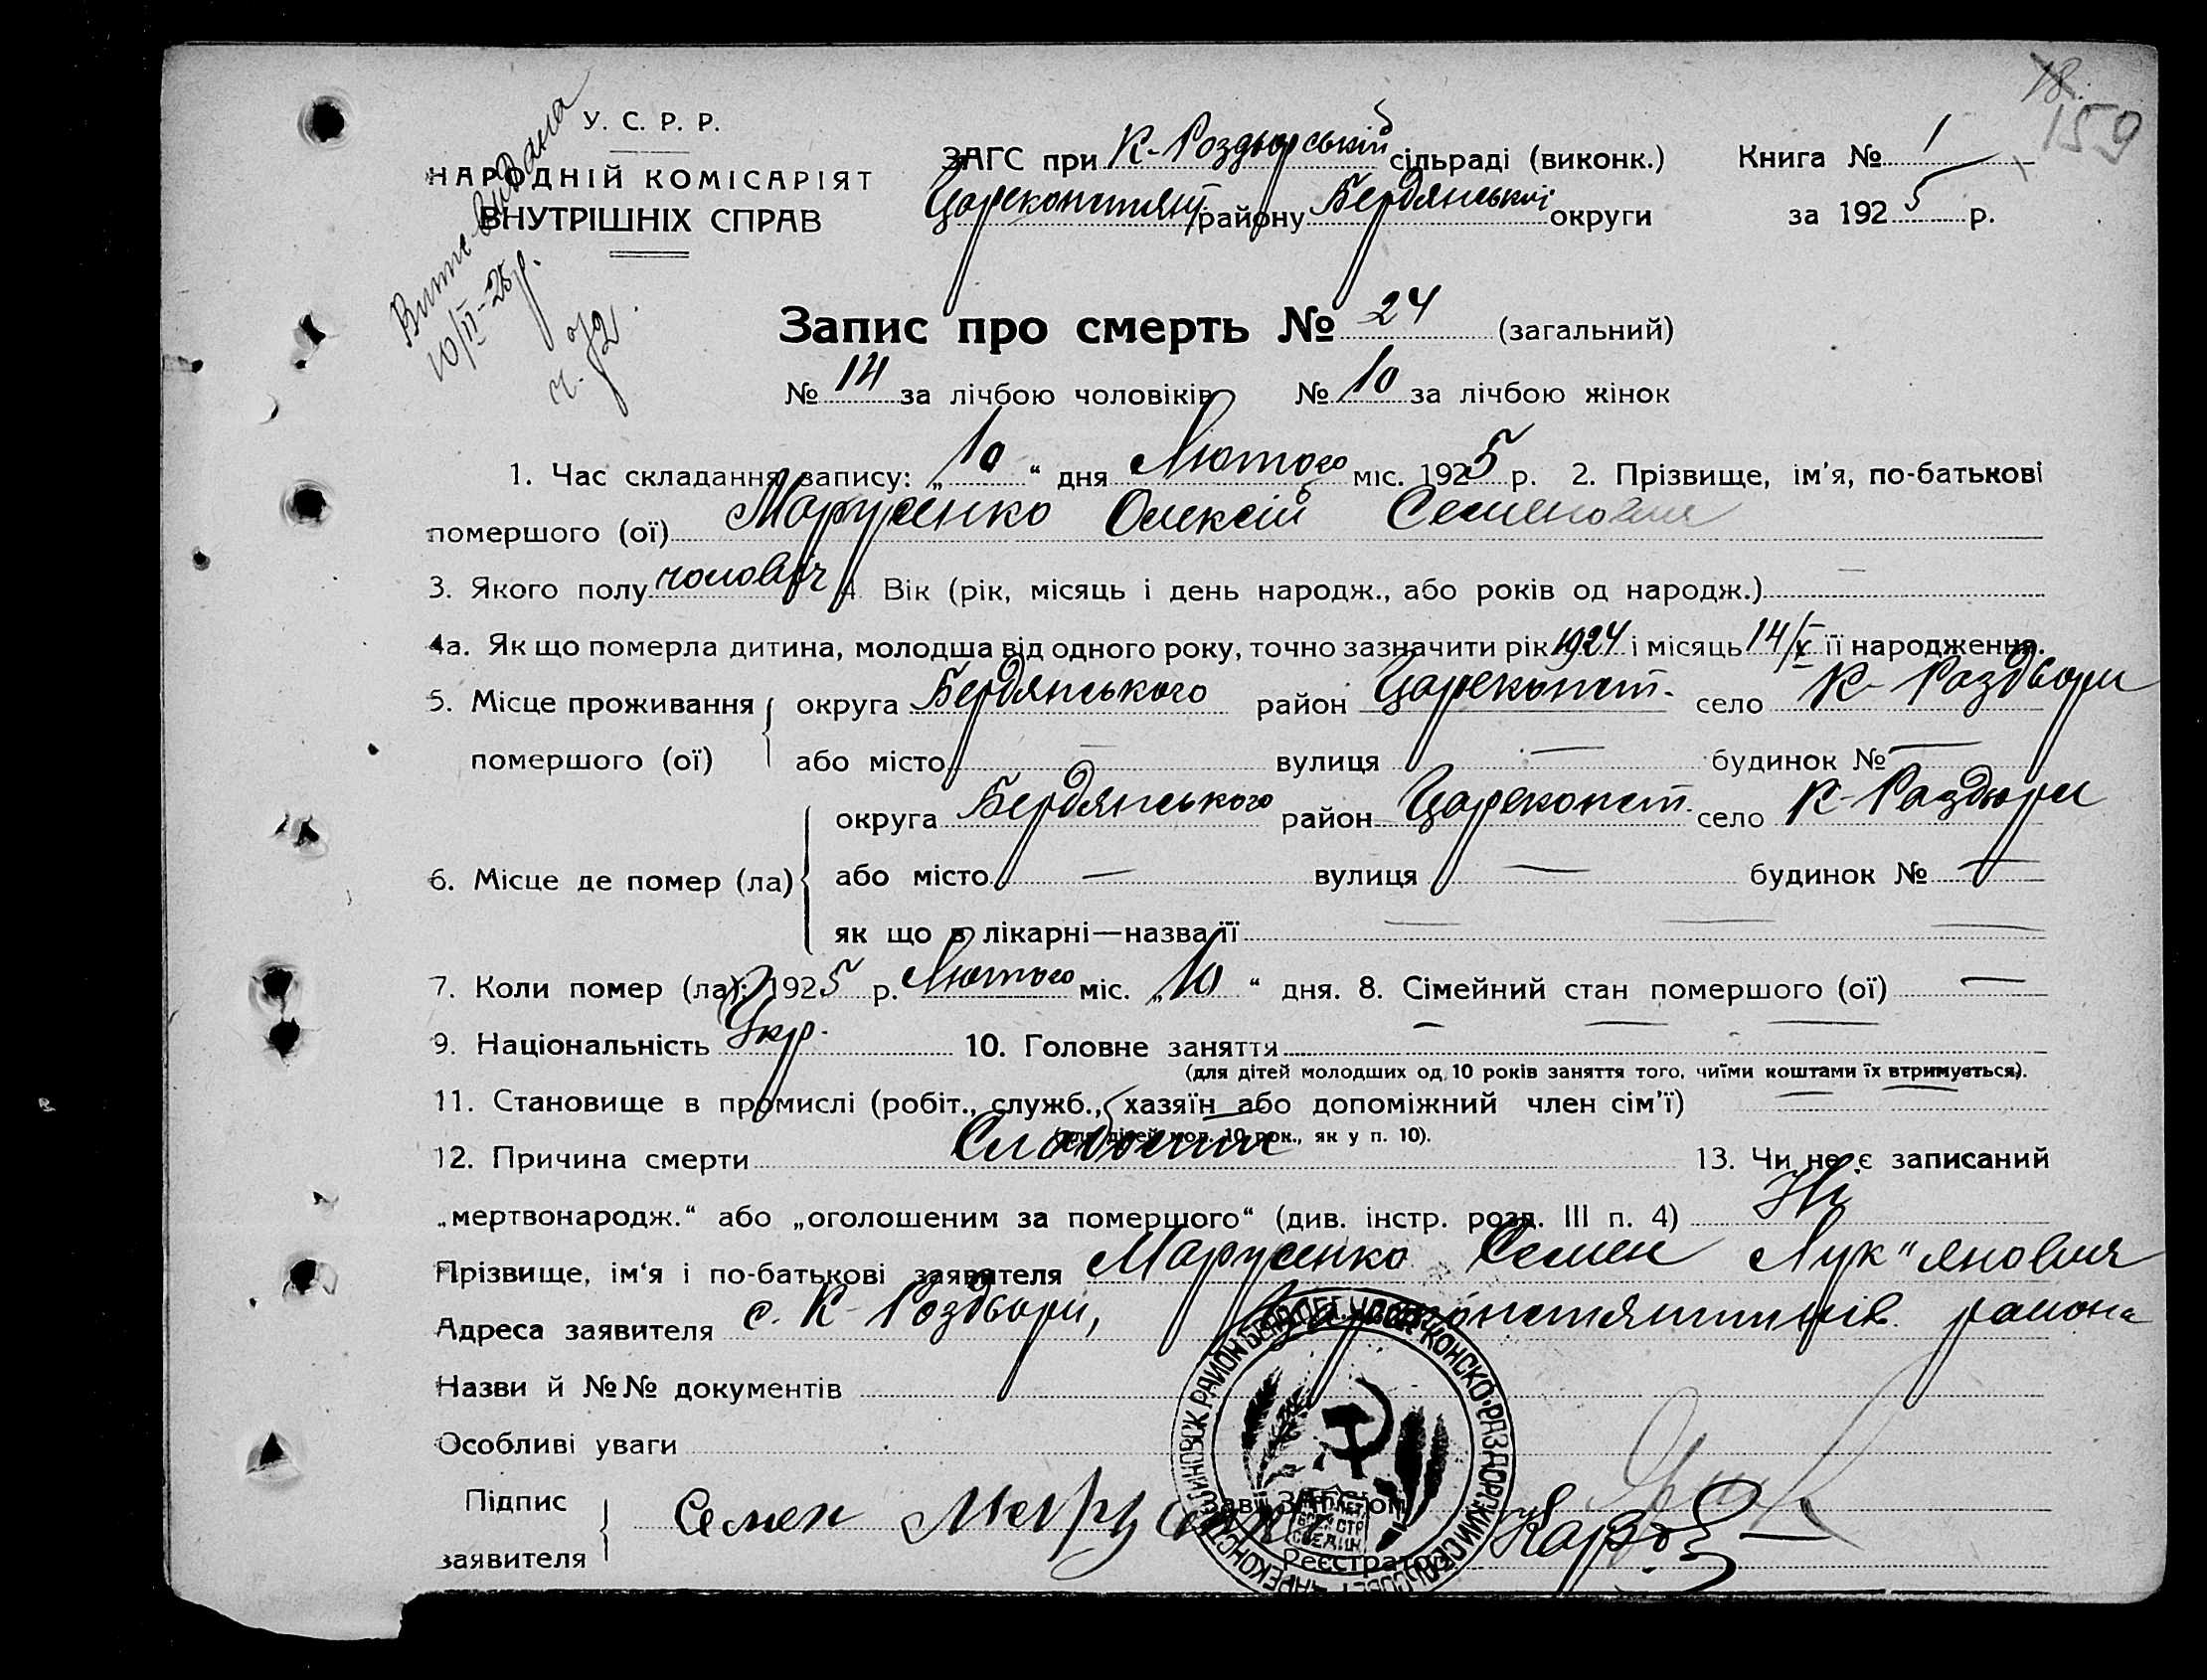 18.
159
У. С. Р. Р.
НАРОДНІЙ КОМІСАРІЯТ
ВНУТРІШНІХ СПРАВ
Витяг видана
10/II-25р.
ч. 72.
ЗАГС при К-Роздорській сільраді (виконк.) Книга № 1
Цареконстянт району Бердянської округи за 1925 р.
Запис про смерть № 24 (загальний)
№ 14 за лічбою чоловіків № 10 за лічбою жінок
1. Час складання запису: „10“ дня Лютого міс. 1925 р. 2. Прізвище, ім'я, по-батькові
помершого (ої) Марусенко Олексій Семенович
3. Якого полу чоловіч 4. Вік (рік, місяць і день народж., або років од народж.) —
4а. Як що померла дитина, молодша від одного року, точно зазначити рік 1924 і місяць 14/X її народження.
5. Місце проживання помершого (ої) округа Бердянського район Цареконст. село К-Роздори
або місто — вулиця — будинок № —
6. Місце де помер (ла) округа Бердянського район Цареконст. село К-Роздори
або місто — вулиця — будинок № —
як що в лікарні—назва її — — —
7. Коли помер (ла): 1925 р. Лютого міс. „10“ дня. 8. Сімейний стан помершого (ої) —
9. Національність Укр. 10. Головне заняття — — —
(для дітей молодших од 10 років заняття того, чиїми коштами їх втримується).
11. Становище в промислі (робіт., служб., хазяїн або допоміжний член сім'ї) — —
(для дітей мол. 10 рок., як у п. 10).
12. Причина смерти Слабости 13. Чи не є записаний
„мертвонародж.“ або „оголошеним за помершого“ (див. інстр. розд. III п. 4) Ні
Прізвище, ім'я і по-батькові заявителя Марусенко Семен Лук"янович
Адреса заявителя с. К-Роздори, Цареконстянтинів. района
Назви й №№ документів
Особливі уваги
Підпис заявителя Семен Марусенко
Зав. ЗАГСом
Реєстратор